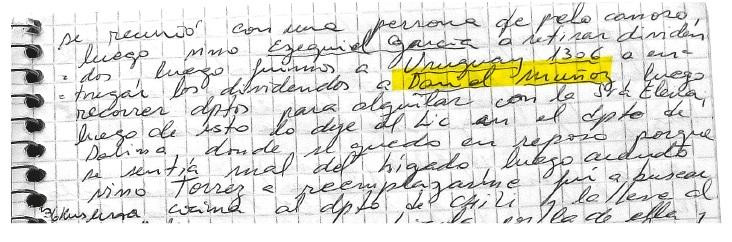 se reunió con una persona de pelo canoso,
luego vino Ezequiel García a retirar dividen
= dos luego fuimos a Uruguay 1306 a en-
= tregar los dividendos a Daniel Muñoz luego
recorrer dptos para alquilar con la Srta Elena,
luego de esto lo deje al Lic en el dpto de
Dalina donde se quedo en reposo porque
se sentia mal del higado luego cuando
vino Torrez a reemplazarme fui a buscar
cocina al dpto de y la lleve al
de ella,